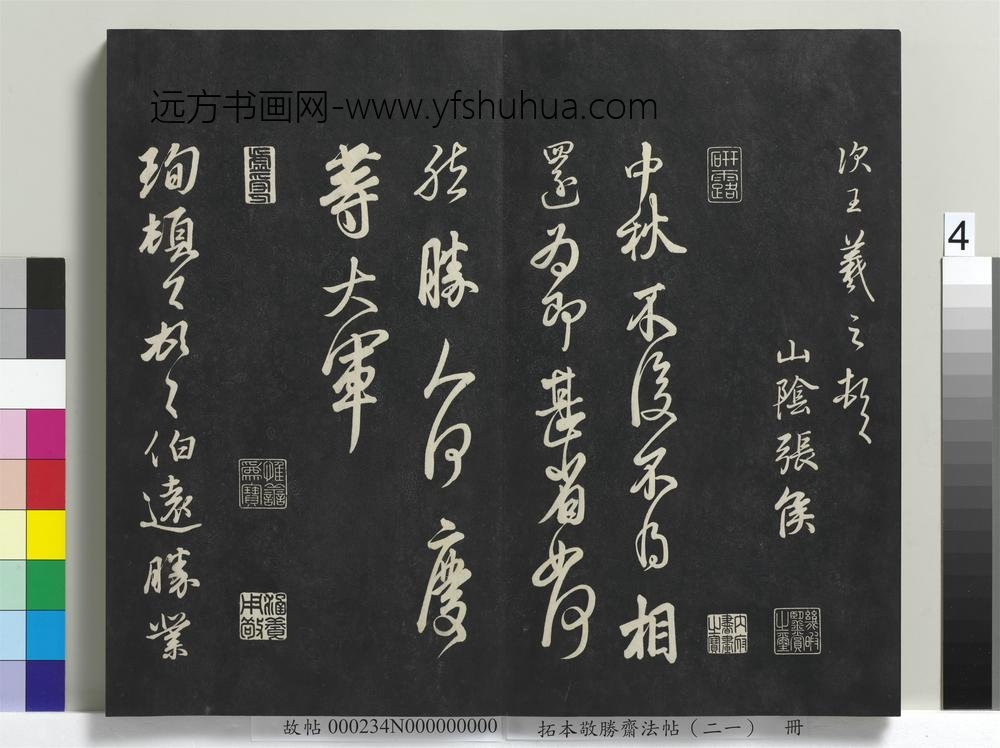 远方书画网-www.yfshuhua.com
次王羲之頓首
山陰張侯
研露
中秋不復不得相
還為即甚省如何
然勝人何慶
等大軍
惟善為寶
珣頓首頓首伯遠勝業
4
故帖 000234N000000000 拓本敬勝齋法帖（二一） 冊